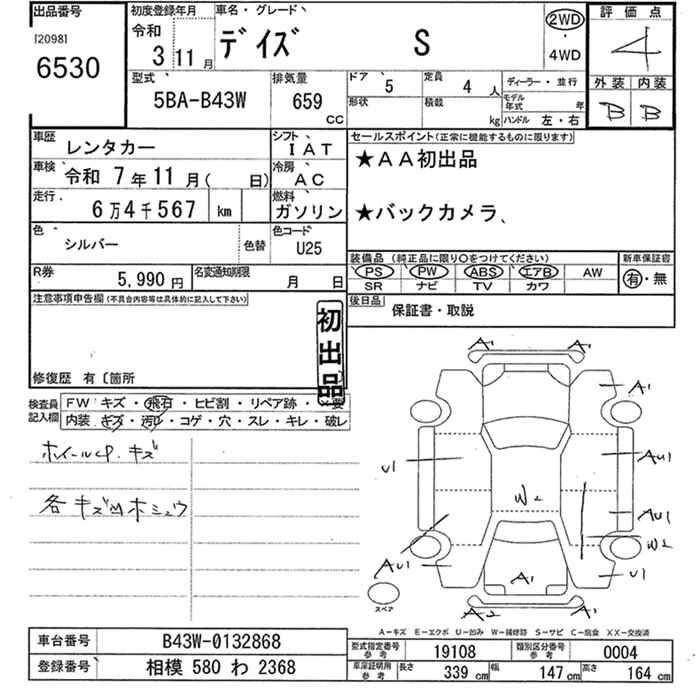 出品番号 初度登録年月 車名・グレード 評価点
[2098] 令和 2WD
6530 3 11月 デイズ S 4WD 4
型式 排気量 ドア 5 定員 4人 ディーラー・並行 外装 内装
5BA-B43W 659 形状 積載 モデル年式 年 B B
CC kg ハンドル 左・右
車歴 レンタカー シフト IAT セールスポイント(正常に機能するものに限ります)
車検 令和 7年11月( 日) 冷房 AC ★AA初出品
走行 6万4千567 km 燃料 ガソリン ★バックカメラ、
色 シルバー 色替 色コード U25
装備品(純正品に限り○をつけてください) 新車保証書
PS PW ABS エアB AW 有・無
R券 5,990円 名変通知期限 月 日 SR ナビ TV カワ
注意事項申告欄(不具合内容等は具体的に記入して下さい) 後日品 保証書・取説
初出品
修復歴 有〔箇所
検査員記入欄 FW キズ・飛石・ヒビ割・リペア跡・×要
内装 キズ・汚レ・コゲ・穴・スレ・キレ・破レ
ホイールCP.キズ
A1 A1
A1
U1 AU1
W2 AU1
W2
AU1 U1
A1
スペア A2 A1
A-キズ E-エクボ U-凹み W-補修跡 S-サビ C-腐食 XX-交換済
車台番号 B43W-0132868 型式指定番号 参考 19108 類別区分番号 参考 0004
登録番号 相模 580 わ 2368 車庫証明用 参考 長さ 339cm 幅 147cm 高さ 164cm